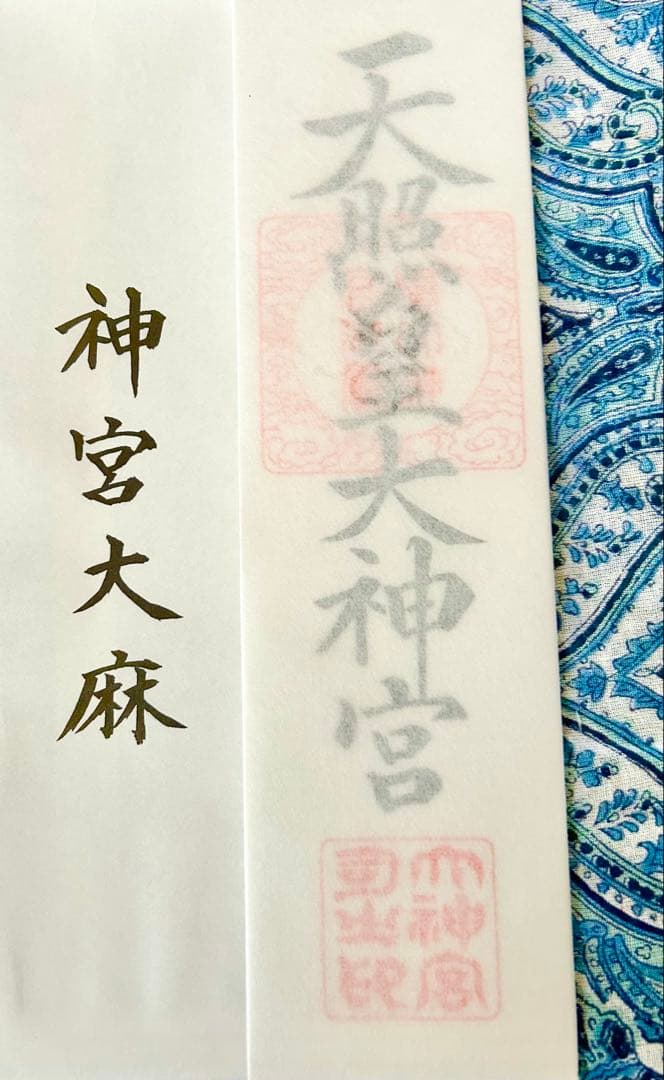 天照皇大神宮
大神宮
司之印
神宮大麻